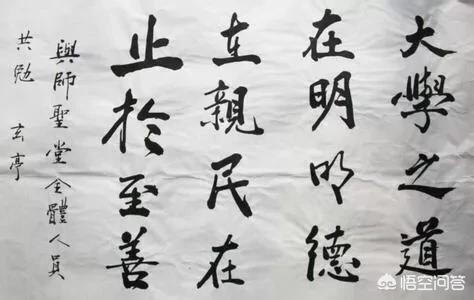 大學之道
在明明德
在親民在
止於至善
與師聖堂全體人員
共勉 玄亭
悟空问答